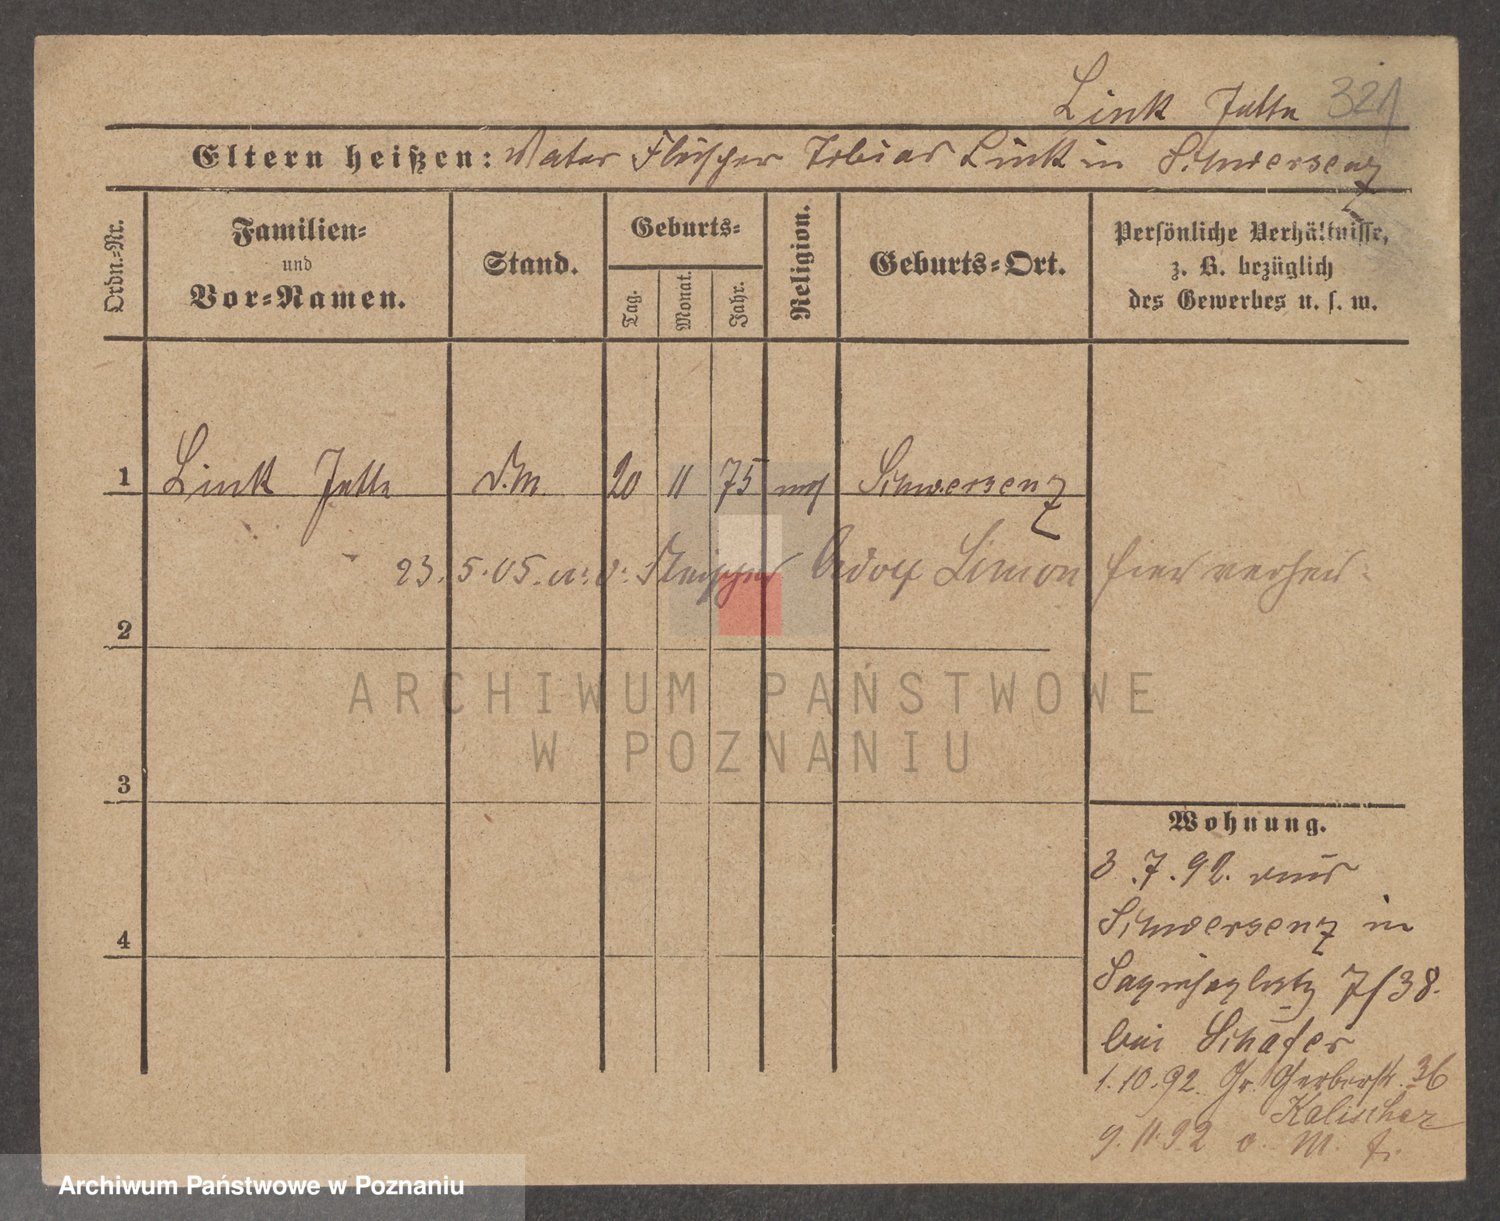 Link Jutta 321
Eltern heißen: Vater Fleischer Tobias Link in Schwersenz
Ordn.-Nr.
Familien-
und
Vor-Namen.
Stand.
Geburts-
Tag.
Monat.
Jahr.
Religion.
Geburts-Ort.
Persönliche Verhältnisse,
z. B. bezüglich
des Gewerbes u. s. w.
1 Link Jutta D.M. 20 11 75 mos Schwersenz
23.5.05. Adolf Simon hier verheir.
2
ARCHIWUM PAŃSTWOWE
W POZNANIU
3
4
Wohnung.
3.7.92. aus
Schwersenz in
Sapiehaplatz 7/38.
bei Schäfer
1.10.92 Gr. Gerberstr. 36
Kalischer
9.11.92 o. M. fr.
Archiwum Państwowe w Poznaniu